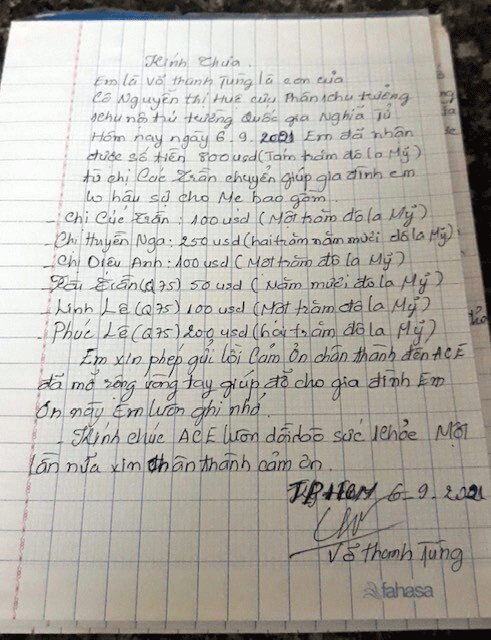 Kính Thưa.
Em là Võ thanh Tùng là con của
Cô Nguyễn thị Huê cựu Phân khu trưởng
khu nội trú trường Quốc gia Nghĩa Tử
Hôm nay ngày 6.9.2021 Em đã nhận
được số tiền 800usd (Tám trăm đô la Mỹ)
từ chị Cúc Trần chuyển giúp gia đình em
lo hậu sự cho Mẹ bao gồm.
- Chị Cúc Trần: 100 usd (Một trăm đô la Mỹ)
- Chị Huyền Nga: 250 usd (hai trăm năm mươi đô la Mỹ)
- Chị Diệu Anh: 100 usd (Một trăm đô la Mỹ)
Trần (Q75) 50 usd (Năm mươi đô la Mỹ)
- Linh Lê (Q75) 100 usd (Một trăm đô la Mỹ)
- Phúc Lê (Q75) 200 usd (hai trăm đô la Mỹ)
Em xin phép gửi lời Cảm Ơn chân thành đến ACE
đã mở rộng vòng tay giúp đỡ cho gia đình Em
Ơn này Em luôn ghi nhớ.
- Kính chúc ACE luôn dồi dào sức khỏe Một
lần nữa xin chân thành cảm ơn.
TP HCM 6-9-2021
Võ thanh Tùng
fahasa